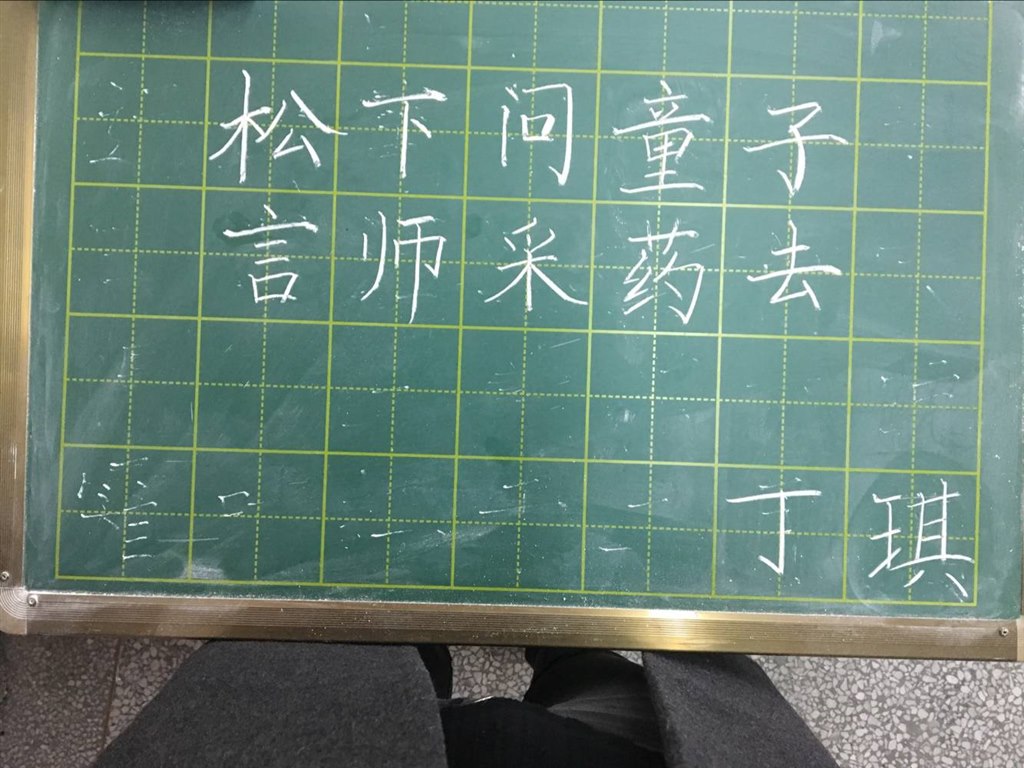 松下问童子
言师采药去
丁琪